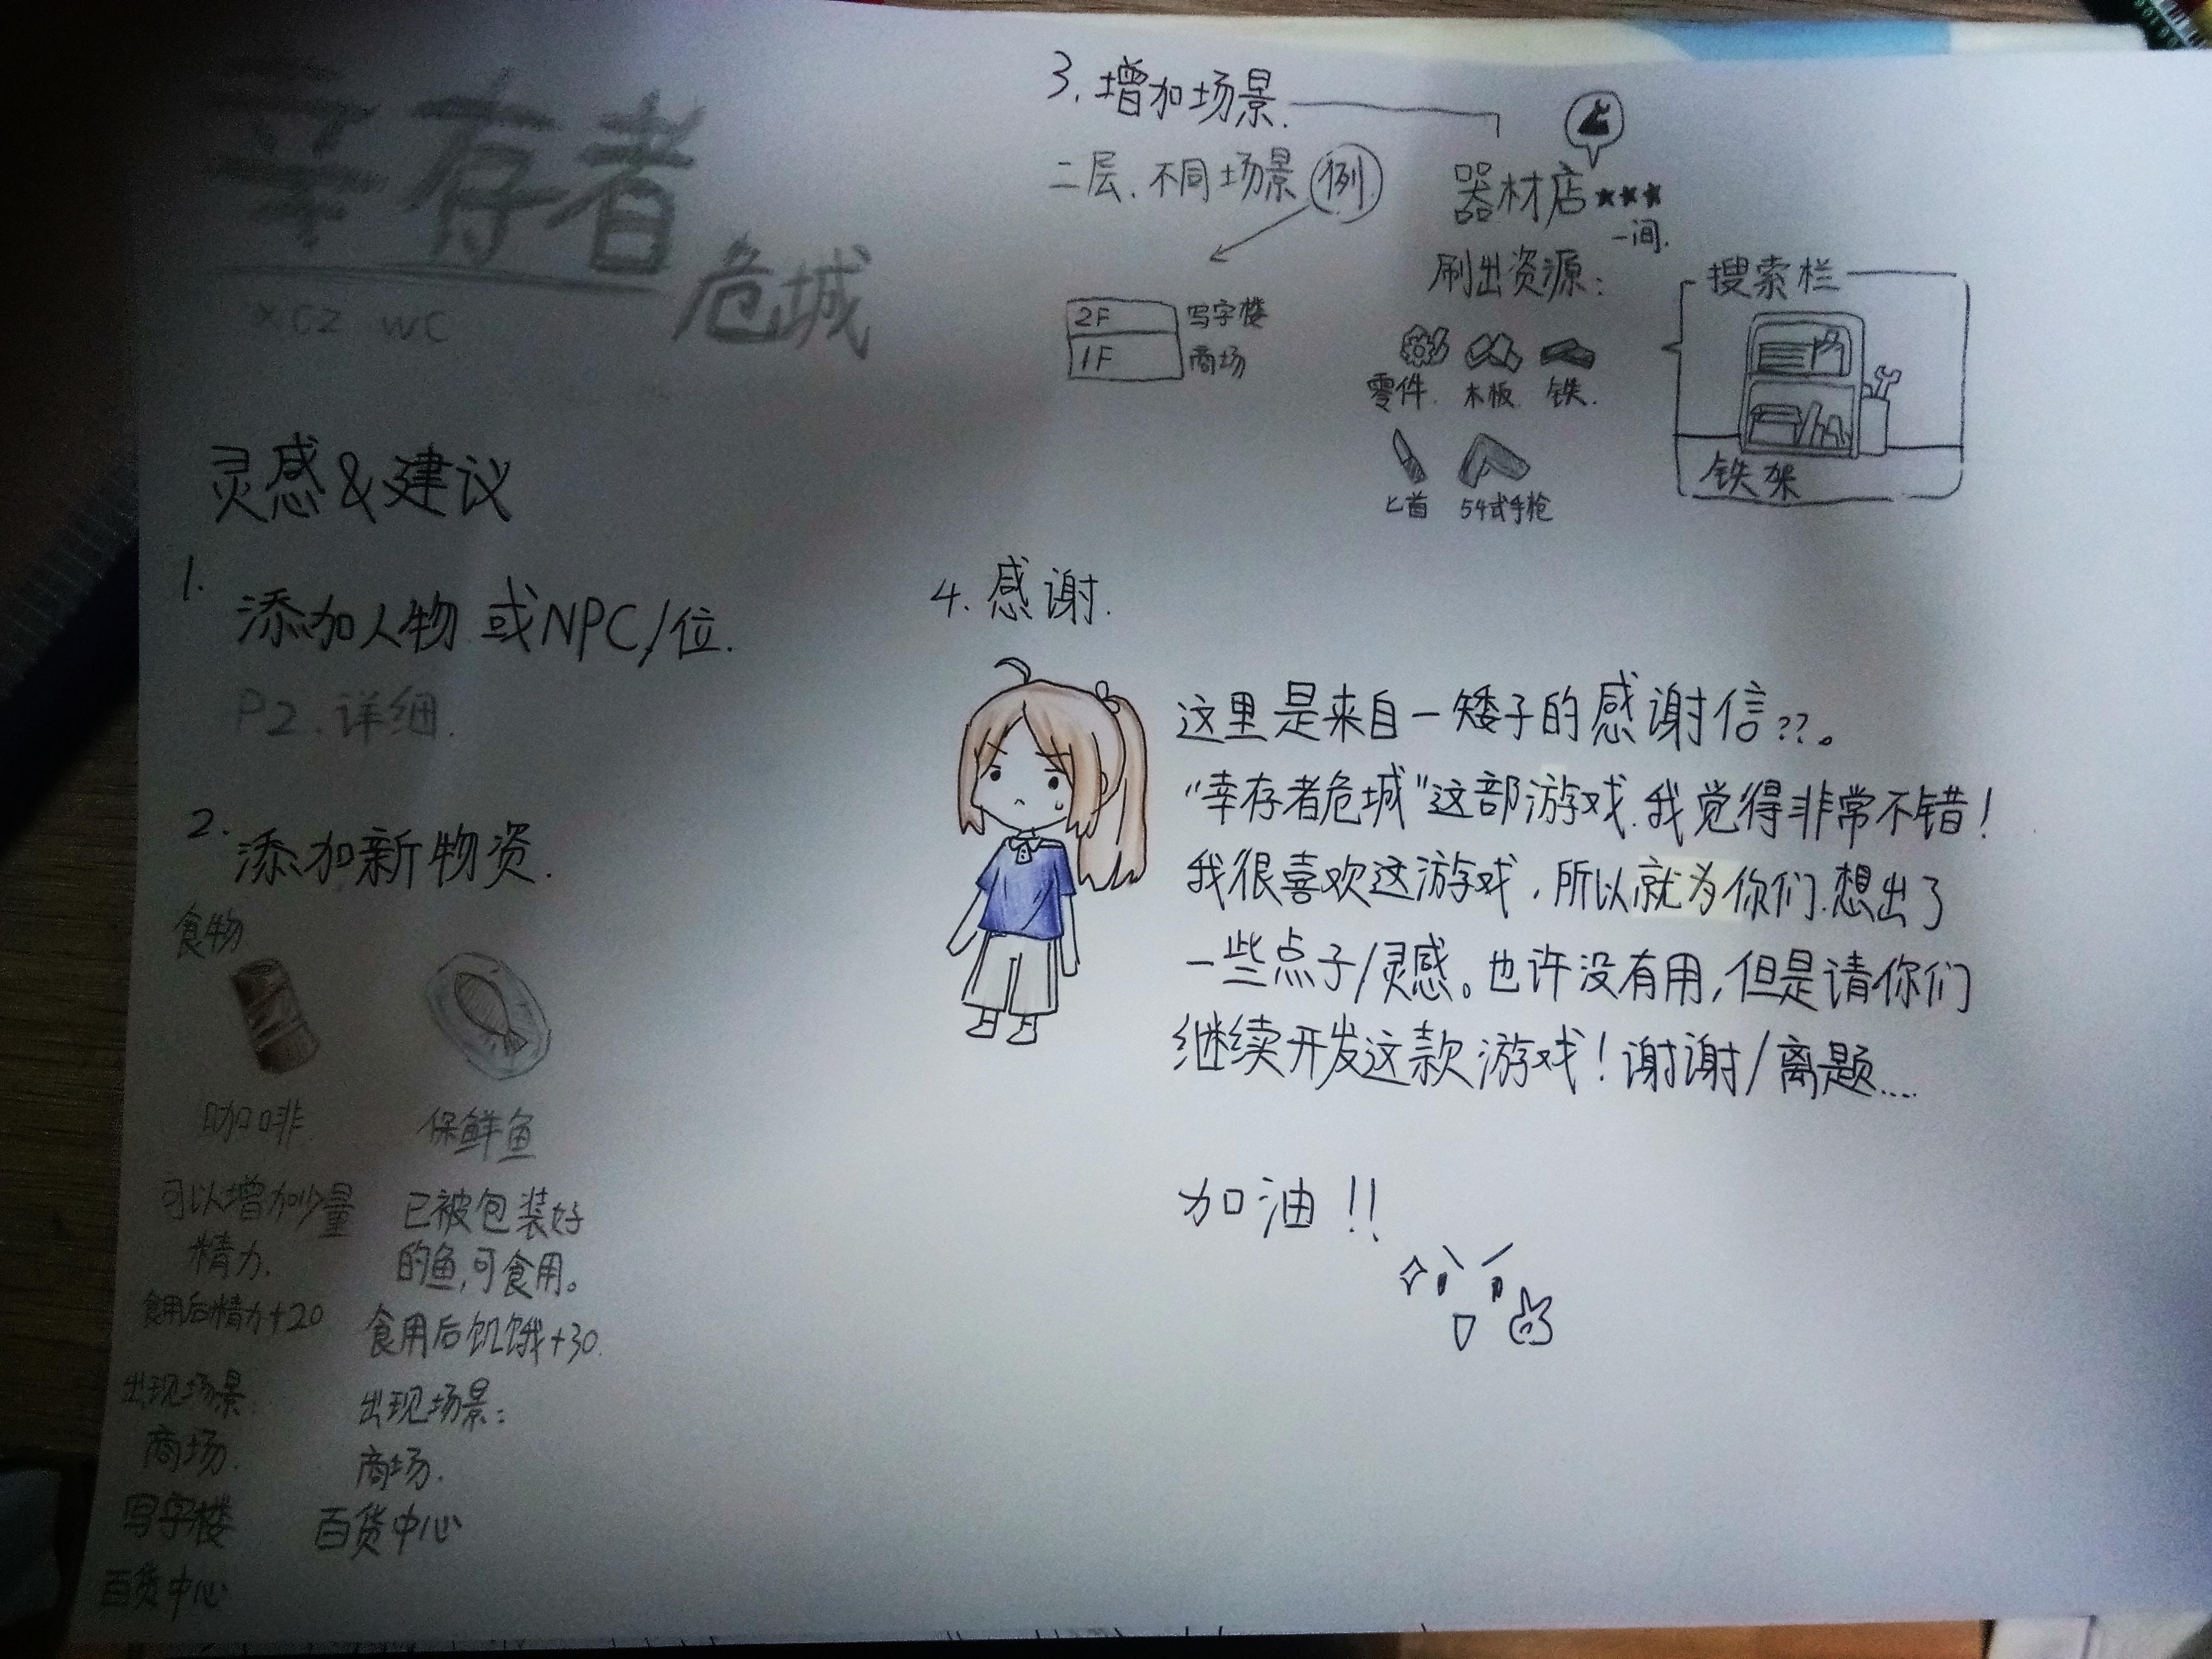 幸存者
危城
XCZ WC
灵感&建议
1.
添加人物 或NPC/位.
P2.详细.
2.
添加新物资.
食物
咖啡
可以增加少量
精力.
食用后精力+20
出现场景
商场.
写字楼
百货中心
保鲜鱼
已被包装好
的鱼,可食用。
食用后饥饿+30.
出现场景:
商场.
百货中心
3.增加场景.
二层.不同场景 例
2F 写字楼
1F 商场
器材店★★★
一间.
刷出资源:
零件. 木板. 铁.
匕首 54式手枪
搜索栏
铁架
4.感谢.
这里是来自一矮子的感谢信??。
“幸存者危城”这部游戏.我觉得非常不错!
我很喜欢这游戏,所以就为你们.想出了
一些点子/灵感。也许没有用,但是请你们
继续开发这款游戏!谢谢/离题....
加油!!